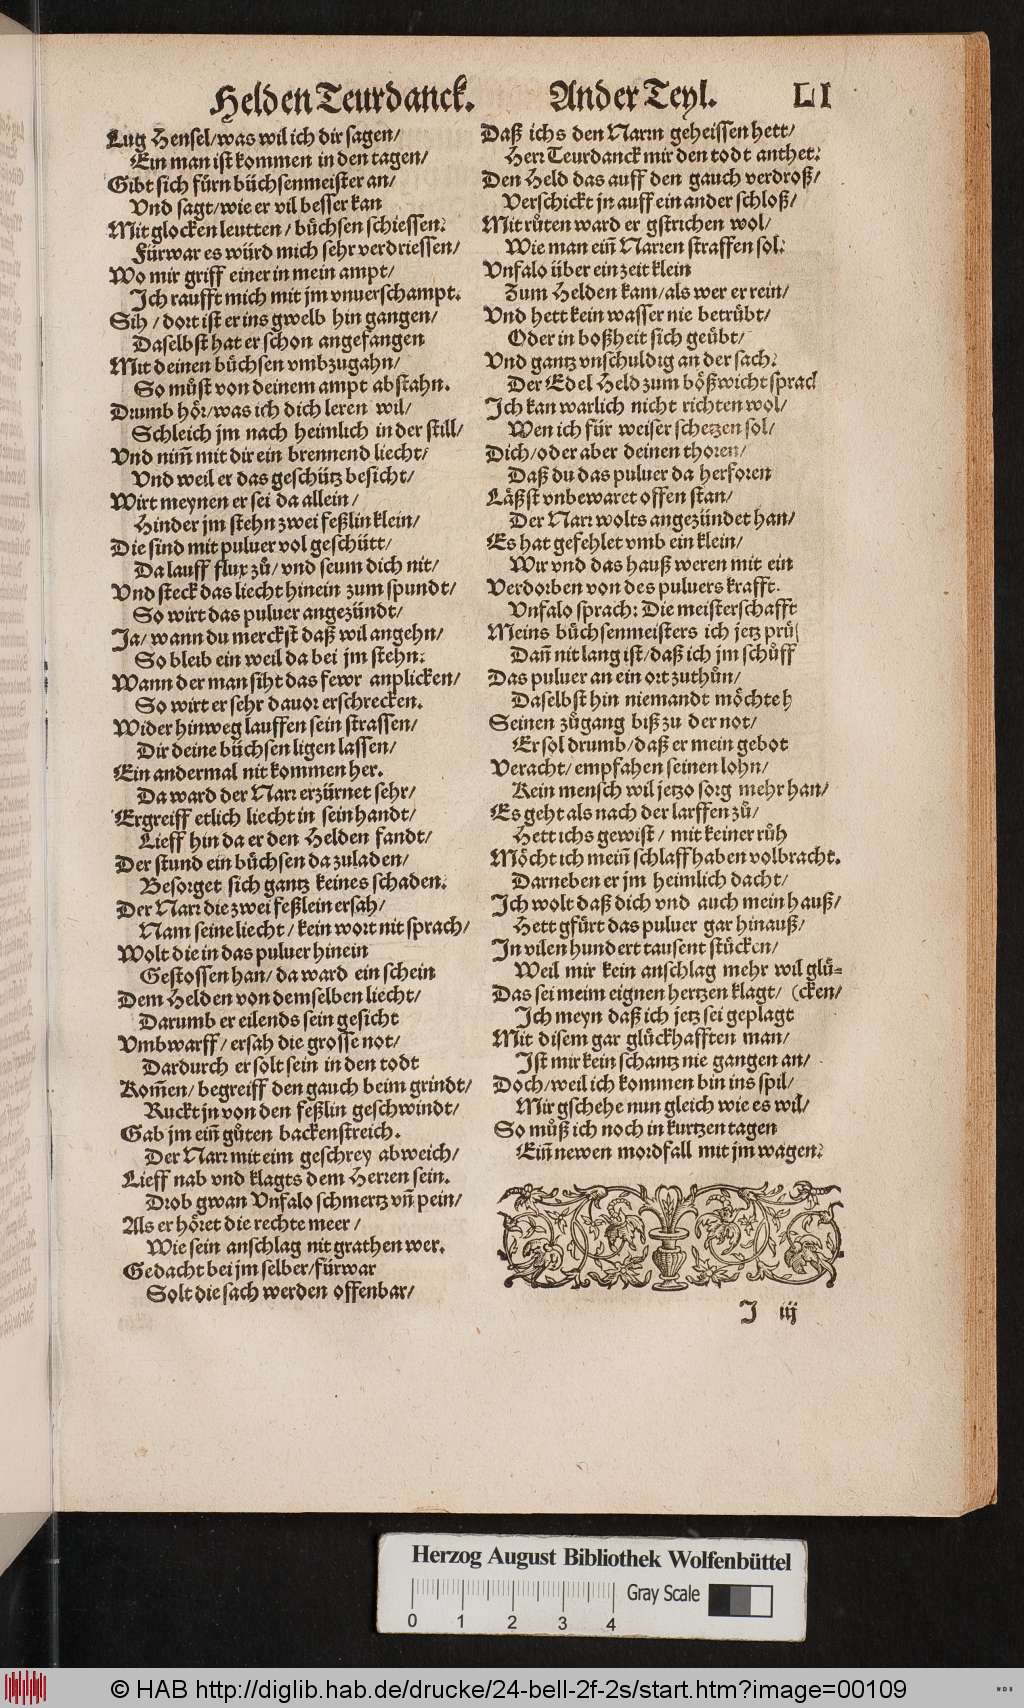 Helden Teurdanck. Ander Teyl. LI
Lug Hensel/was wil ich dir sagen/
Ein man ist kommen in den tagen/
Gibt sich fürn büchsenmeister an/
Vnd sagt/wie er vil besser kan
Mit glocken leutten/ büchsen schiessen:
Fürwar es würd mich sehr verdriessen/
Wo mir griff einer in mein ampt/
Ich raufft mich mit jm vnuerschampt.
Sih/ dort ist er ins gwelb hin gangen/
Daselbst hat er schon angefangen
Mit deinen büchsen vmbzugahn/
So můst von deinem ampt abstahn.
Drumb hör/was ich dich leren wil/
Schleich jm nach heimlich in der still/
Vnd nim̃ mit dir ein brennend liecht/
Vnd weil er das geschütz besicht/
Wirt meynen er sei da allein/
Hinder jm stehn zwei feßlin klein/
Die sind mit puluer vol geschütt/
Da lauff flux zů/ vnd seum dich nit/
Vnd steck das liecht hinein zum spundt/
So wirt das puluer angezündt/
Ja/ wann du merckst daß wil angehn/
So bleib ein weil da bei jm stehn:
Wann der man siht das fewr anplicken/
So wirt er sehr dauor erschrecken.
Wider hinweg lauffen sein strassen/
Dir deine büchsen ligen lassen/
Ein andermal nit kommen her.
Da ward der Narr erzürnet sehr/
Ergreiff etlich liecht in sein handt/
Lieff hin da er den Helden fandt/
Der stund ein büchsen da zuladen/
Besorget sich gantz keines schaden:
Der Narr die zwei feßlein ersah/
Nam seine liecht/ kein wort nit sprach/
Wolt die in das puluer hinein
Gestossen han/ da ward ein schein
Dem Helden von demselben liecht/
Darumb er eilends sein gesicht
Vmbwarff/ ersah die grosse not/
Dardurch er solt sein in den todt
Kom̃en/ begreiff den gauch beim grindt/
Ruckt jn von den feßlin geschwindt/
Gab jm ein̄ gůten backenstreich.
Der Narr mit eim geschrey abweich/
Lieff nab vnd klagts dem Herren sein.
Drob gwan Vnfalo schmertz vn̄ pein/
Als er höret die rechte meer/
Wie sein anschlag nit grathen wer.
Gedacht bei jm selber/fürwar
Solt die sach werden offenbar/
Daß ichs den Narrn geheissen hett/
Herr Teurdanck mir den todt anthet:
Den Held das auff den gauch verdroß/
Verschickt jn auff ein ander schloß/
Mit růten ward er gstrichen wol/
Wie man ein̄ Narren straffen sol:
Vnfalo über ein zeit klein
Zum Helden kam/als wer er rein/
Vnd hett kein wasser nie betrübt/
Oder in boßheit sich geübt/
Vnd gantz vnschuldig an der sach:
Der Edel Held zum bößwicht sprach
Ich kan warlich nicht richten wol/
Wen ich für weiser schetzen sol/
Dich/oder aber deinen thoren/
Daß du das puluer da herforen
Läßst vnbewaret offen stan/
Der Narr wolts angezündet han/
Es hat gefehlet vmb ein klein/
Wir vnd das hauß weren mit ein
Verdorben von des puluers krafft.
Vnfalo sprach: Die meisterschafft
Meins büchsenmeisters ich jetz
Dan̄ nit lang ist/daß ich jm schůff
Das puluer an ein ort zuthůn/
Daselbst hin niemandt möchte h
Seinen zůgang biß zu der not/
Er sol drumb/daß er mein gebot
Veracht/ empfahen seinen lohn/
Kein mensch wil jetzo sorg mehr han/
Es geht als nach der larffen zů/
Hett ichs gewist/ mit keiner růh
Möcht ich mein̄ schlaff haben volbracht.
Darneben er jm heimlich dacht/
Ich wolt daß dich vnd auch mein hauß/
Hett gfürt das puluer gar hinauß/
In vilen hundert tausent stücken/
Weil mir kein anschlag mehr wil glü-
Das sei meim eignen hertzen klagt/ (cken/
Ich meyn daß ich jetz sei geplagt
Mit disem gar glückhafften man/
Ist mir kein schantz nie gangen an/
Doch/weil ich kommen bin ins spil/
Mir gschehe nun gleich wie es wil/
So můß ich noch in kurtzen tagen
Ein̄ newen mordfall mit jm wagen:
J iij
Herzog August Bibliothek Wolfenbüttel
Gray Scale
0 1 2 3 4
© HAB http://diglib.hab.de/drucke/24-bell-2f-2s/start.htm?image=00109